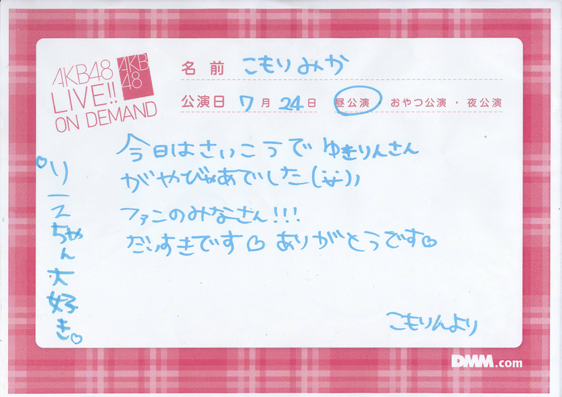 AKB48
LIVE!!
ON DEMAND
AKB
48
名前 こもりみか
公演日 7月24日 昼公演 おやつ公演・夜公演
今日はさいこうで ゆきりんさん
がやびゃあでした
ファンのみなさん!!!
だいすきです♡ ありがとうです♡
こもりんより
りーえちゃん大好き。
DMM.com